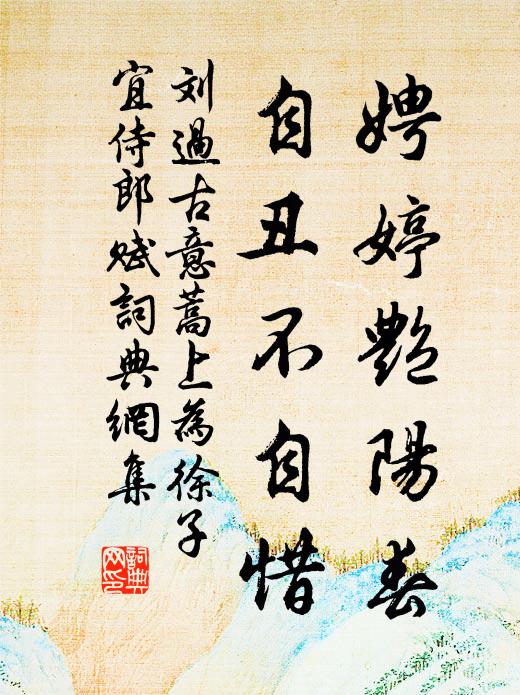 娉婷艷陽春
自丑不自惜
刘過古意蒿上為徐子
宜侍郎赋詞典網集
詞典网印